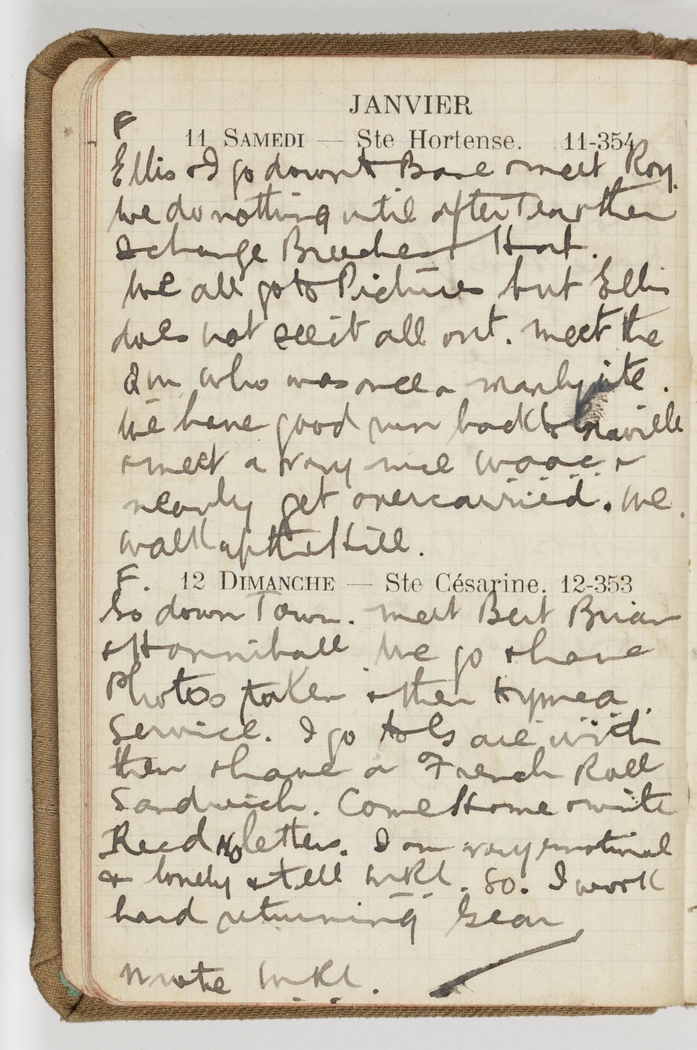 JANVIER
F
11 SAMEDI — Ste Hortense. 11-354
Ellis & I go down to Base & meet Roy.
We do nothing until after Tea & then
I change Breeches at Host.
We all go to Pictures but Ellis
does not see it all out. meet the
who was once a
We have good run back to
& meet a very nice waac &
nearly get overcarried. We
walk up the Hill.
F. 12 DIMANCHE — Ste Césarine. 12-353
Go down Town. meet Bert Brian
& Honniball We go & have
Photos taken & then Hymea
Service. I go to with
then & have a French Roll
Sandwich. Come Home & write
Recd No letters. I am very emotional
& lonely & tell so. I work
hard returning Gear
Wrote